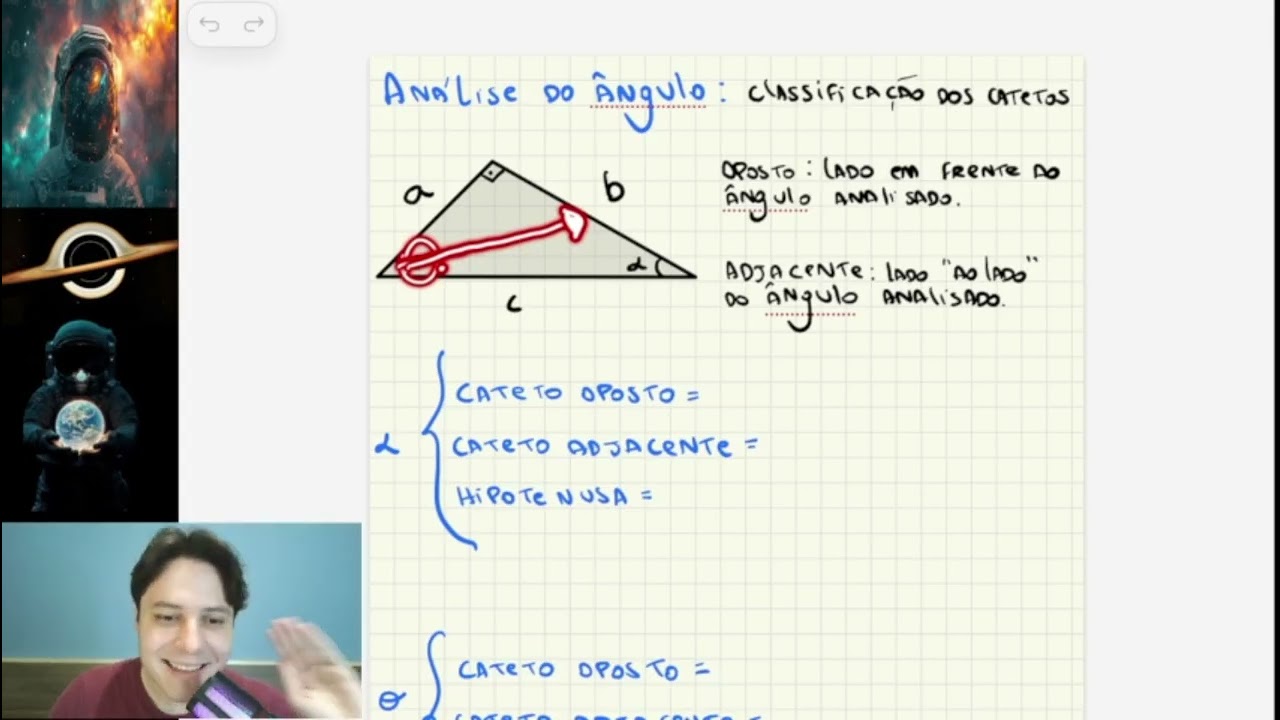 Análise do ângulo: classificação dos catetos
a
b
oposto: lado em frente do
ângulo analisado.
α
adjacente: lado "ao lado"
do ângulo analisado.
c
cateto oposto =
α
cateto adjacente =
hipotenusa =
cateto oposto =
θ
cateto adjacente =